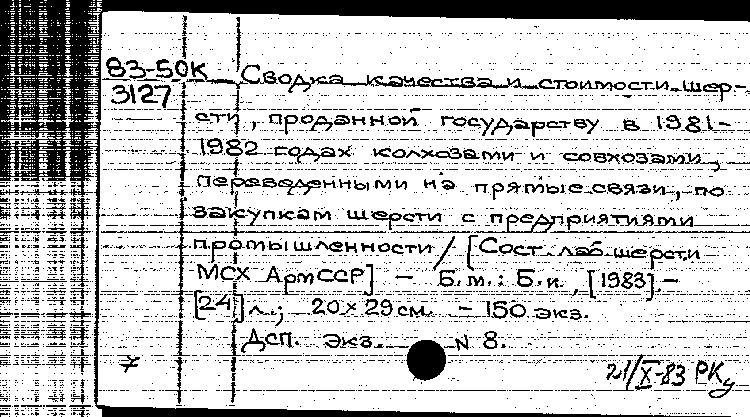 83-50К Сводка качества и стоимости шер-
3127
сти, проданной государству в 1981-
1982 годах колхозами и совхозами,
переведенными на прямые связи, по
закупкам шерсти с предприятиями
промышленности / [Сост. лаб. шерсти
МСХ АрмССР] – Б.м.: Б.и., [1983].–
[24] л.; 20×29 см. – 150 экз.
Дсп. Экз. N 8.
7 21/X-83 РК